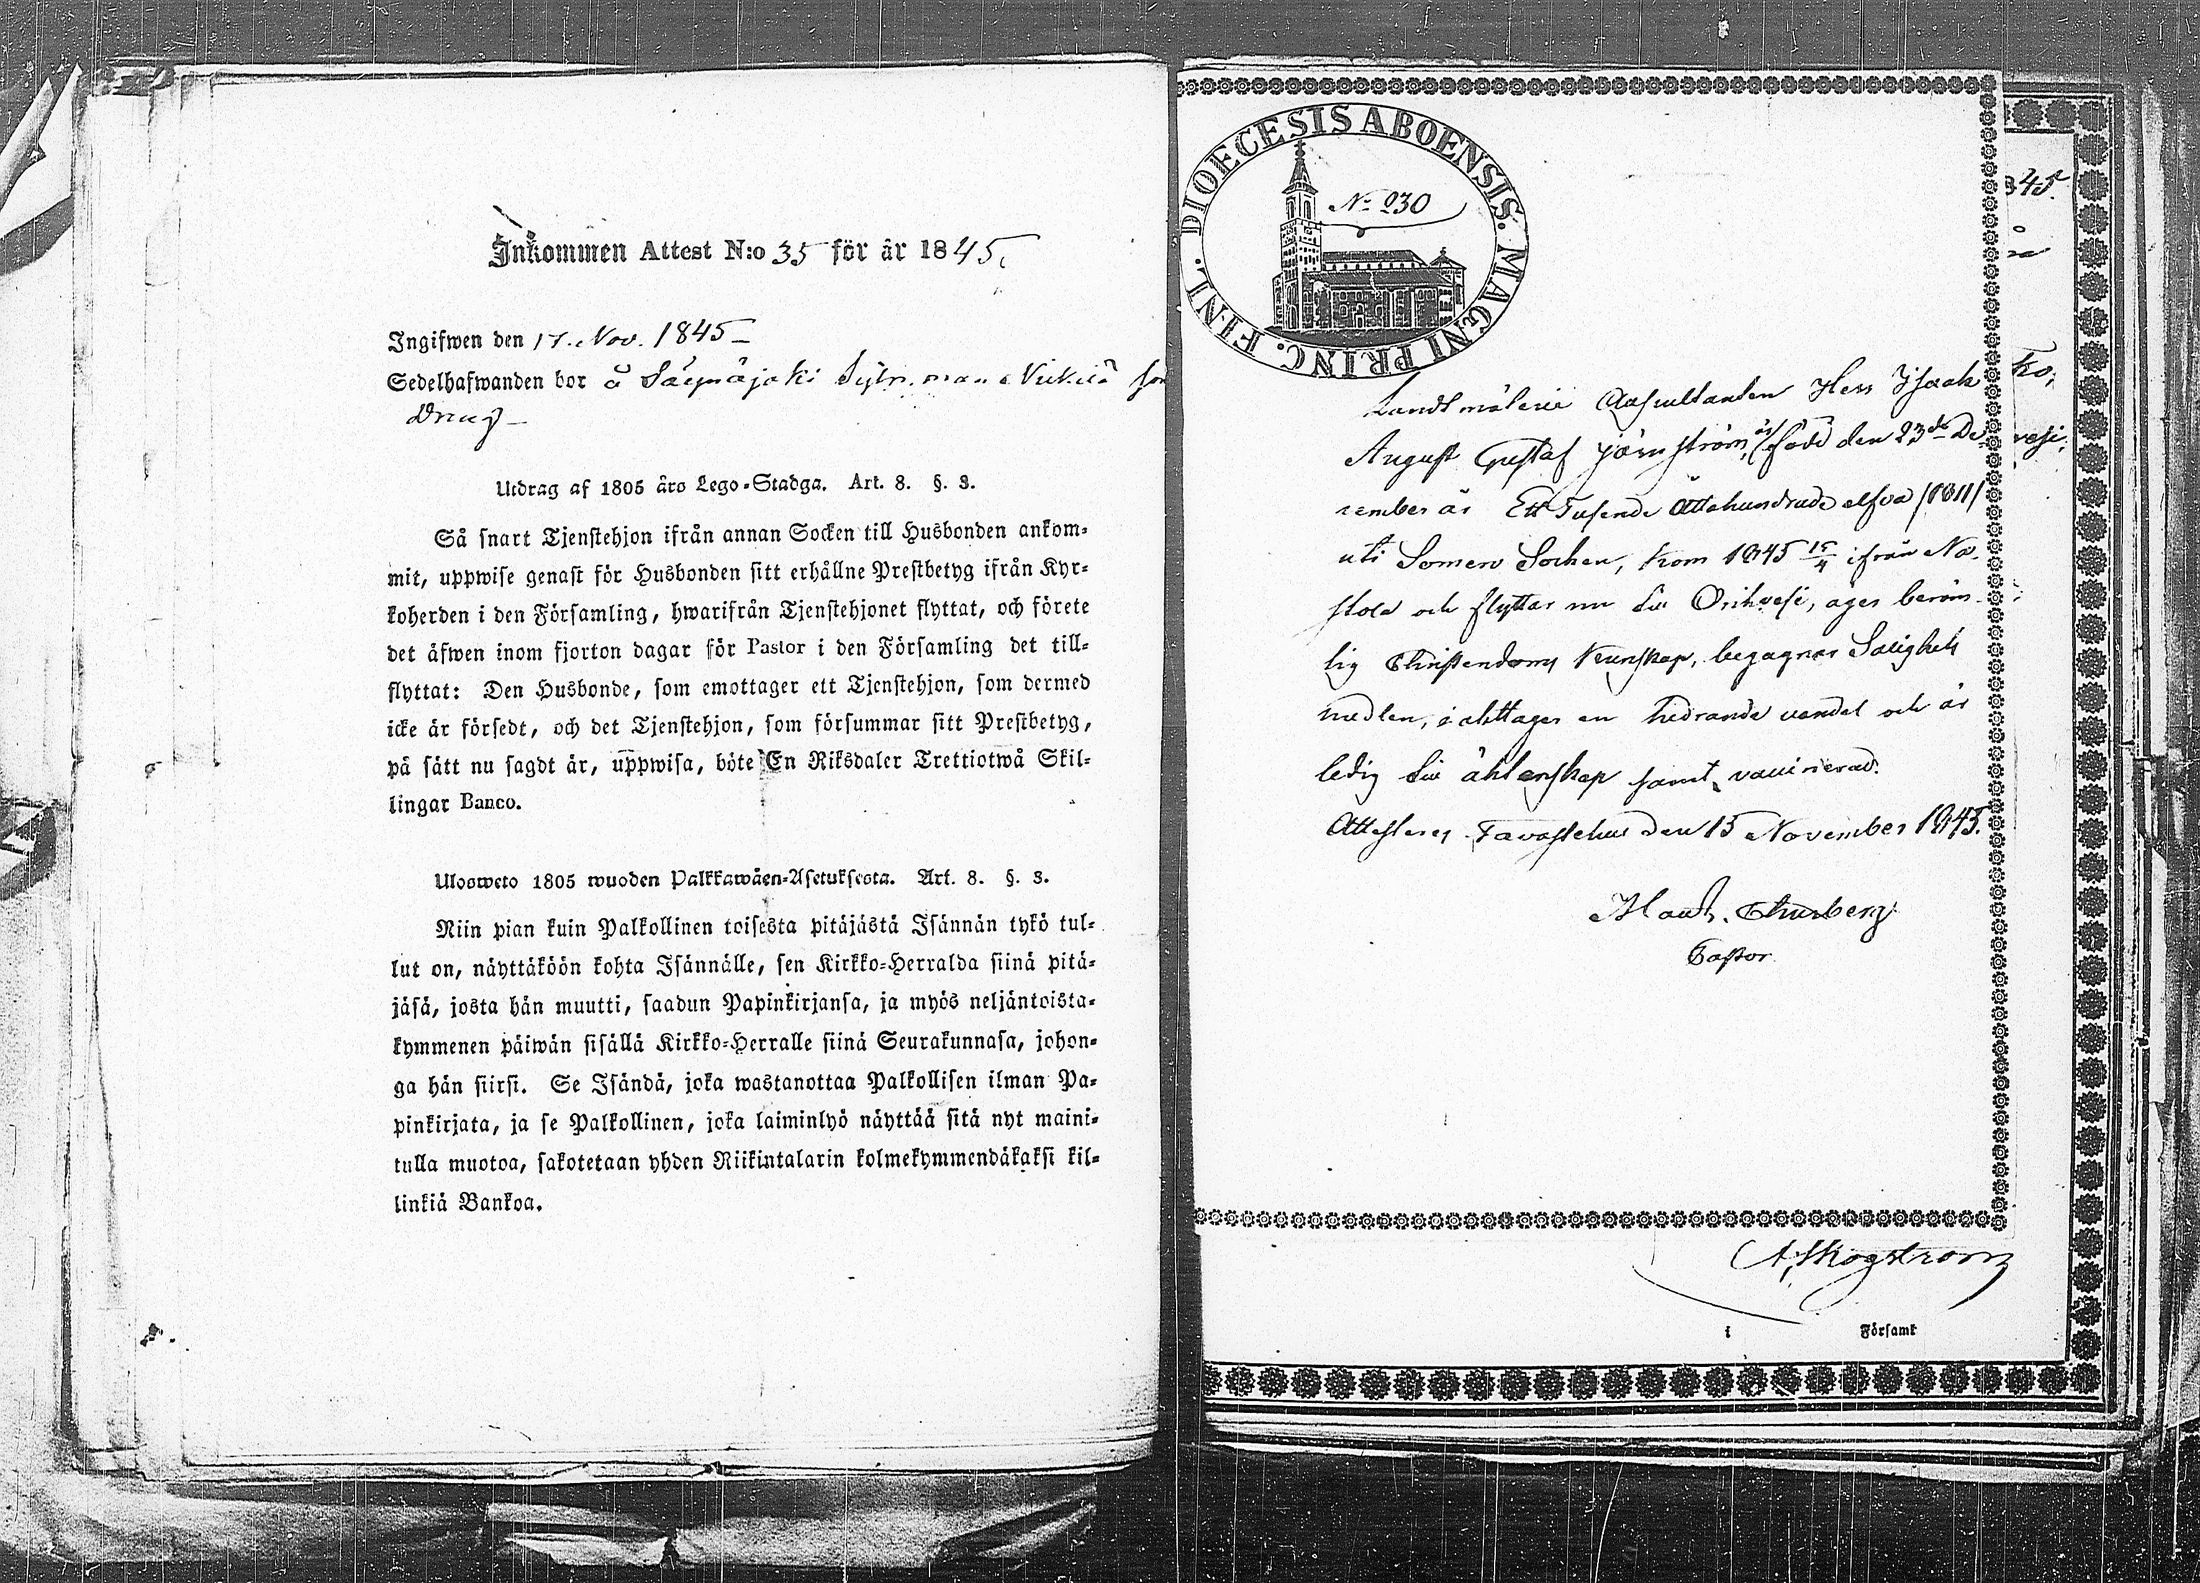 Inkommen Attest N:o 35 för år 1845.
Ingifwen den 17. Nov. 1845 –
Sedelhafwanden bor å
Dräng –
Utdrag af 1805 års Lego-Stadga. Art. 8. §. 3.
Så snart Tjenstehjon ifrån annan Socken till Husbonden ankom-
mit, uppwise genast för Husbonden sitt erhållne Prestbetyg ifrån Kyr-
koherden i den Församling, hwarifrån Tjenstehjonet flyttat, och förete
det äfwen inom fjorton dagar för Pastor i den Församling det till-
flyttat: Den Husbonde, som emottager ett Tjenstehjon, som dermed
icke är försedt, och det Tjenstehjon, som försummar sitt Prestbetyg,
på sätt nu sagdt är, uppwisa, böte En Riksdaler Trettiotwå Skil-
lingar Banco.
Ulosweto 1805 wuoden Palkkawäen-Asetuksesta. Art. 8. §. 3.
Niin pian kuin Palkollinen toisesta pitäjästä Isännän tykö tul-
lut on, näyttäköön kohta Isännälle, sen Kirkko-Herralda siinä pitä-
jäsä, josta hän muutti, saadun Papinkirjansa, ja myös neljäntoista-
kymmenen päiwän sisällä Kirkko-Herralle siinä Seurakunnasa, johon-
ga hän siirsi. Se Isändä, joka wastanottaa Palkollisen ilman Pa-
pinkirjata, ja se Palkollinen, joka laiminlyö näyttää sitä nyt maini-
tulla muotoa, sakotetaan yhden Riikintalarin kolmekymmendäkaksi kil-
linkiä Bankoa.
DIOECESIS ABOENSIS. MAGNI PRINC. FINL.
No 230
Landtmäteri Auscultanten Herr Isaak
August Gustaf Järnström, är född den 23de De-
cember år Ett Tusende Åttahundrade elfva /1811/
uti Somero Socken, kom 1845 15/4 ifrån
och flyttar nu till Orihvesi, äger beröm-
lig Christendoms Kunskap, begagnar Salighets
medlen, iakttager en hedrande vandel och är
ledig till äktenskap samt vaccinerad.
Attesteras Tavastehus den 15 November 1845.
Thurberg
Pastor.
A. Skogström
i Församl
845.
ko,
vesi,